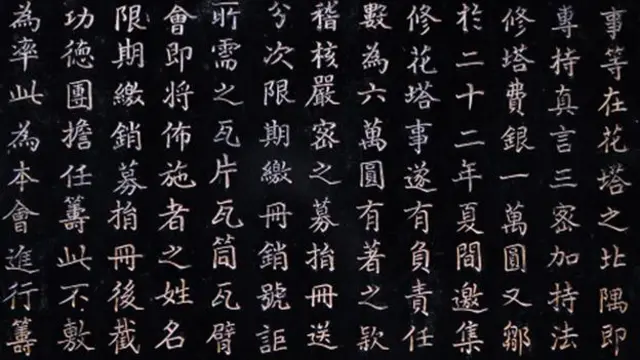 事等在花塔之北隅即
專持真言三密加持法
修塔費銀一萬圓又鄒
於二十二年夏間邀集
修花塔事遂有負責任
數為六萬圓有著之款
稽核嚴密之募捐冊送
分次限期繳冊銷號詎
所需之瓦片瓦筒瓦臂
會即將佈施者之姓名
限期繳銷募捐冊後截
功德團擔任籌此不敷
為率此為本會進行籌